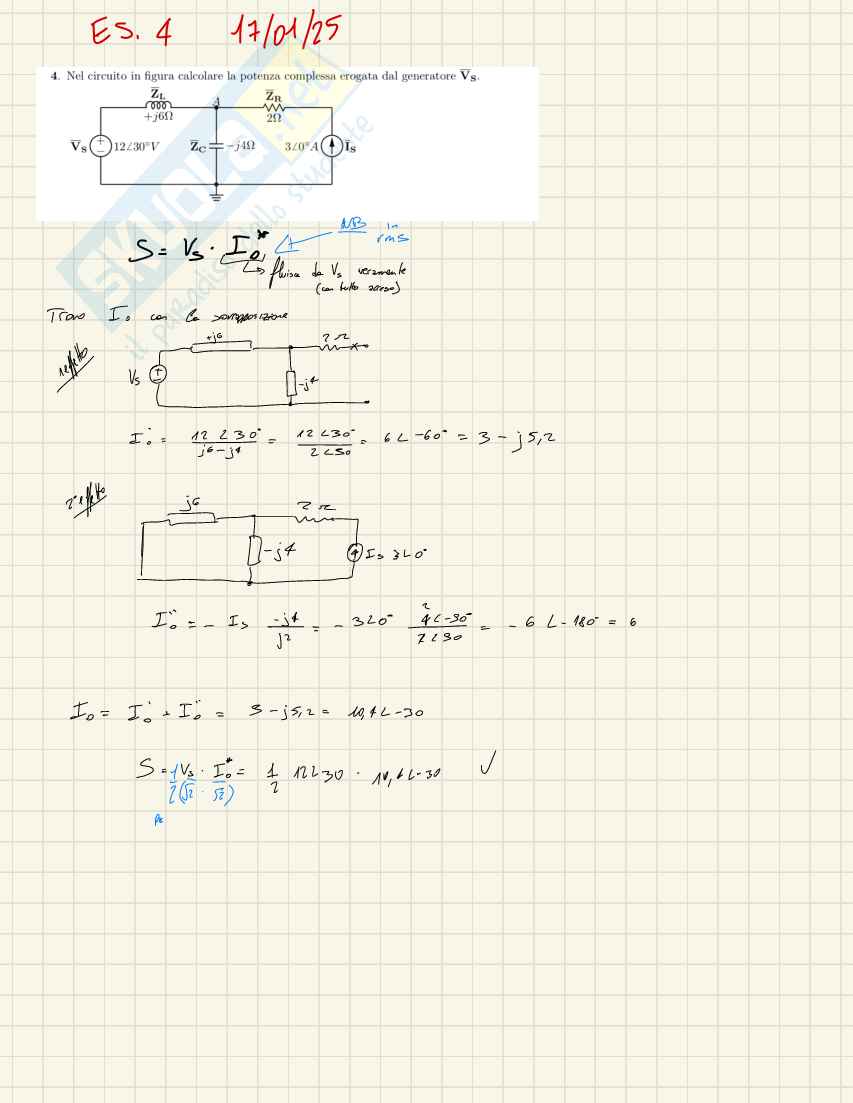 ES. 4 17/01/25
4. Nel circuito in figura calcolare la potenza complessa erogata dal generatore V̅S.
Z̅L
+j6Ω
A
Z̅R
2Ω
V̅S
+
−
12∠30°V
Z̅C
−j4Ω
3∠0°A
I̅S
SKUOLA.net
il paradiso dello studente
S = Vs · I₀*
NB in
rms
da Vs veramente
(con tutto acceso)
Trovo I₀ con la sovrapposizione
1°effetto
+j6
2Ω
Vs
+
-
-j4
I₀' = 12∠30° / j6-j4 = 12∠30° / 2∠90 = 6∠-60° = 3 - j5,2
2°effetto
j6
2Ω
-j4
Is 3∠0°
I₀'' = - Is -j4 / j2 = - 3∠0° 4∠-90° / 2∠90 = - 6∠-180° = 6
2
I₀ = I₀' + I₀'' = 3 - j5,2 = 10,4∠-30
S = 1/2 Vs · I₀* = 1/2 12∠30 · 10,4∠-30 ✓
(√2 · √2)